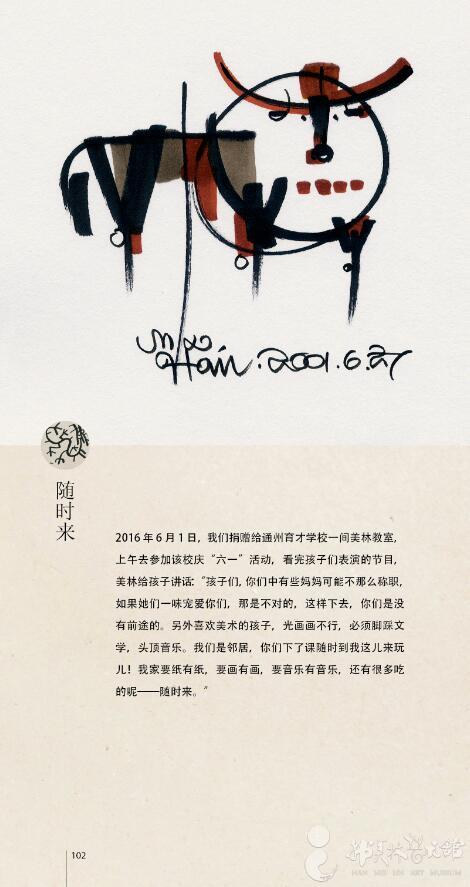 Han.2001.6.27
随时来
2016年6月1日，我们捐赠给通州育才学校一间美林教室，
上午去参加该校庆“六一”活动，看完孩子们表演的节目，
美林给孩子讲话：“孩子们，你们中有些妈妈可能不那么称职，
如果她们一味宠爱你们，那是不对的，这样下去，你们是没
有前途的。另外喜欢美术的孩子，光画画不行，必须脚踩文
学，头顶音乐。我们是邻居，你们下了课随时到我这儿来玩
儿！我家要纸有纸，要画有画，要音乐有音乐，还有很多吃
的呢——随时来。”
102
韩美林艺术馆
HAN MEI LIN ART MUSEUM